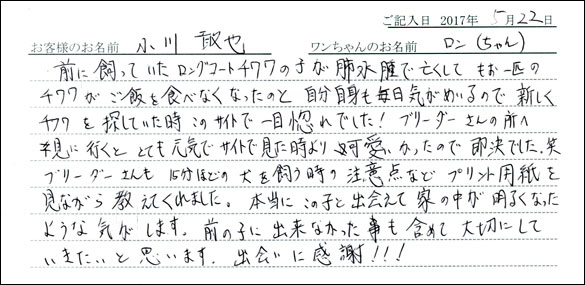 ご記入日 2017年 5月22日
お客様のお名前 小川 敢也 ワンちゃんのお名前 ロン(ちゃん)
前に飼っていたロングコートチワワの子が肺水腫で亡くして もお一匹の
チワワが ご飯を食べなくなったのと 自分自身も毎日気がめいるので 新しく
チワワを 探していた時 このサイトで一目惚れでした! ブリーダーさんの前へ
見に行くと とても元気でサイトで見た時より 可愛いかったので 即決でした.笑
ブリーダーさんも 15分ほどの 犬を飼う時の 注意点など プリント用紙を
見ながら 教えてくれました。 本当に この子と出会えて 家の中が明るくなった
ような気がします。 前の子に 出来なかった事も 含めて 大切にして
いきたいと 思います. 出会いに 感謝!!!